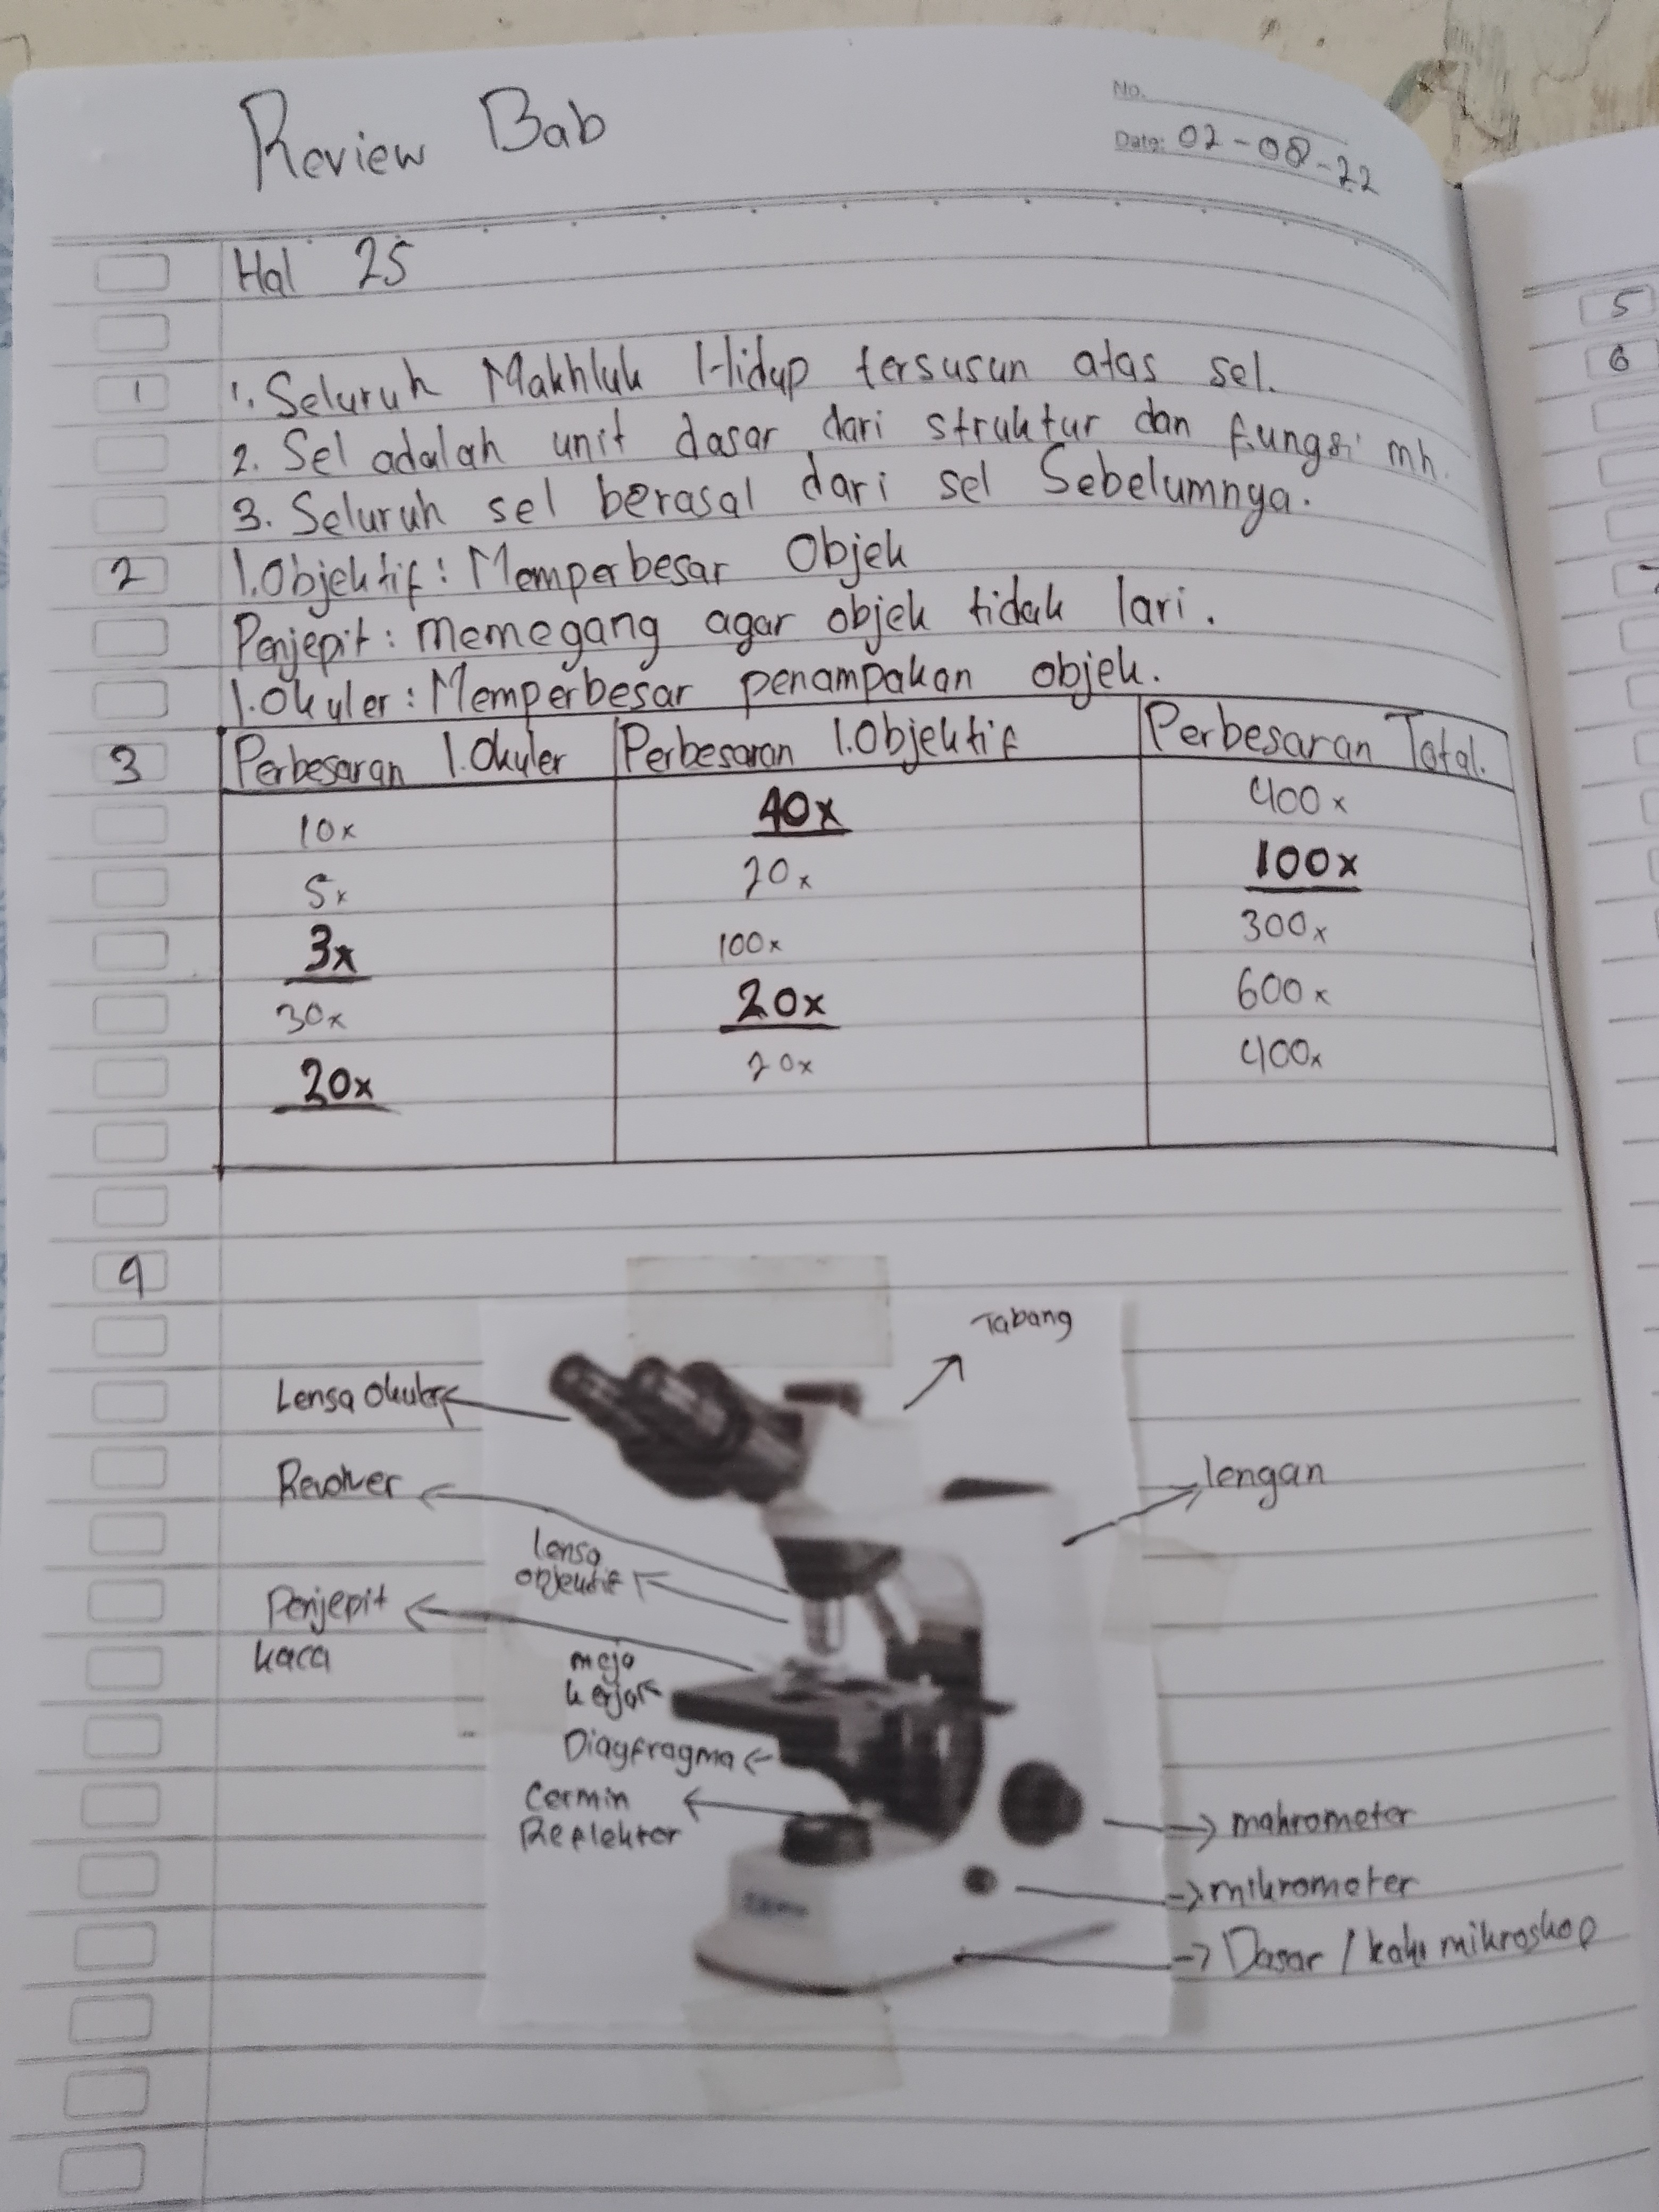 Review Bab
No.
Date: 02-08-22
Hal 25
1 1. Seluruh Makhluk Hidup tersusun atas sel.
2. Sel adalah unit dasar dari struktur dan fungsi mh.
3. Seluruh sel berasal dari sel Sebelumnya.
2 l.Objektif : Memperbesar Objek
Penjepit : memegang agar objek tidak lari.
l.Okuler : Memperbesar penampakan objek.
3 Perbesaran l.Okuler Perbesaran l.Objektif Perbesaran Total.
10x 40x 400x
5x 20x 100x
3x 100x 300x
30x 20x 600x
20x 20x 400x
4
Tabang
Lensa Okuler
Revolver
lengan
lensa
objektif
Penjepit
kaca
meja
kerja
Diagfragma
Cermin
Reflektor
makrometer
mikrometer
Dasar / kaki mikroskop
5
6